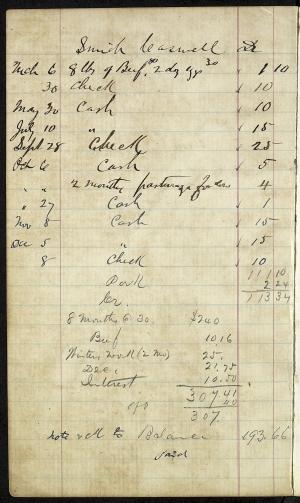 Smith Caswell Dr
Mch 6 8 lbs of Beef, 80 2 dg eggs 30 1 10
30 Check 10
May 30 Cash 10
July 10 " 15
Sept 28 Check 25
Oct 6 Cash 5
" " 2 months pasturage for cow 4
" 27 Cash 1
Nov 8 Cash 15
Dec 5 " 15
8 Check 10
111 10
Pork 2 24
113 34
Cr.
8 months @ 30. $240
Beef 10 16
Winters work (2 mo) 25.
Dec. 21.75
Interest 10.50
307.41
307.
note to Balance 193.66
paid